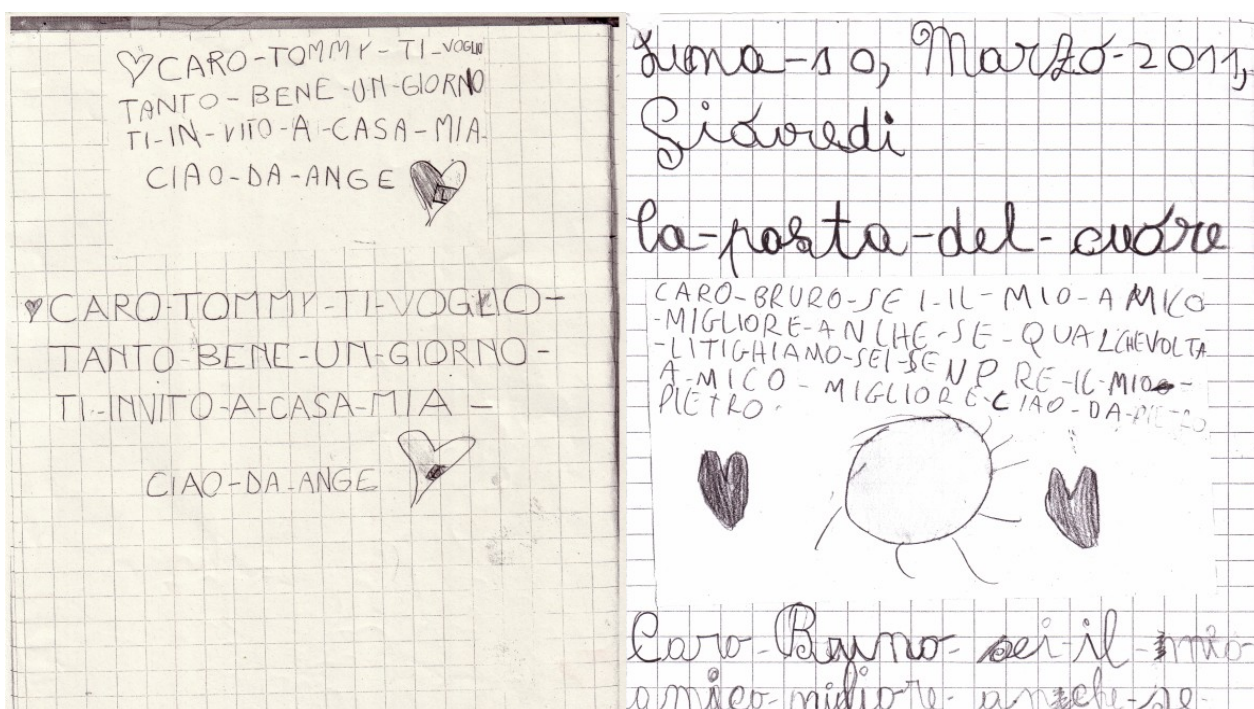 CARO-TOMMY-TI-VOGLIO
TANTO-BENE-UN-GIORNO
TI-IN-VITO-A-CASA-MIA-
CIAO-DA-ANGE
CARO-TOMMY-TI-VOGLIO-
TANTO-BENE-UN-GIORNO-
TI-INVITO-A-CASA-MIA-
CIAO-DA-ANGE
Luna-10, Marzo-2011,
Gióvedi
la-posta-del-cuóre
CARO-BRURO-SEI-IL-MIO-AMICO
-MIGLIORE-ANCHE-SE-QUALCHEVOLTA
-LITIGHIAMO-SEI-SENPRE-IL-MIO-
A-MICO-MIGLIORE-CIAO-DA-PIETRO
PIETRO.
Caro-Bruno-sei-il-mio-
amico-migliore-anche-se-